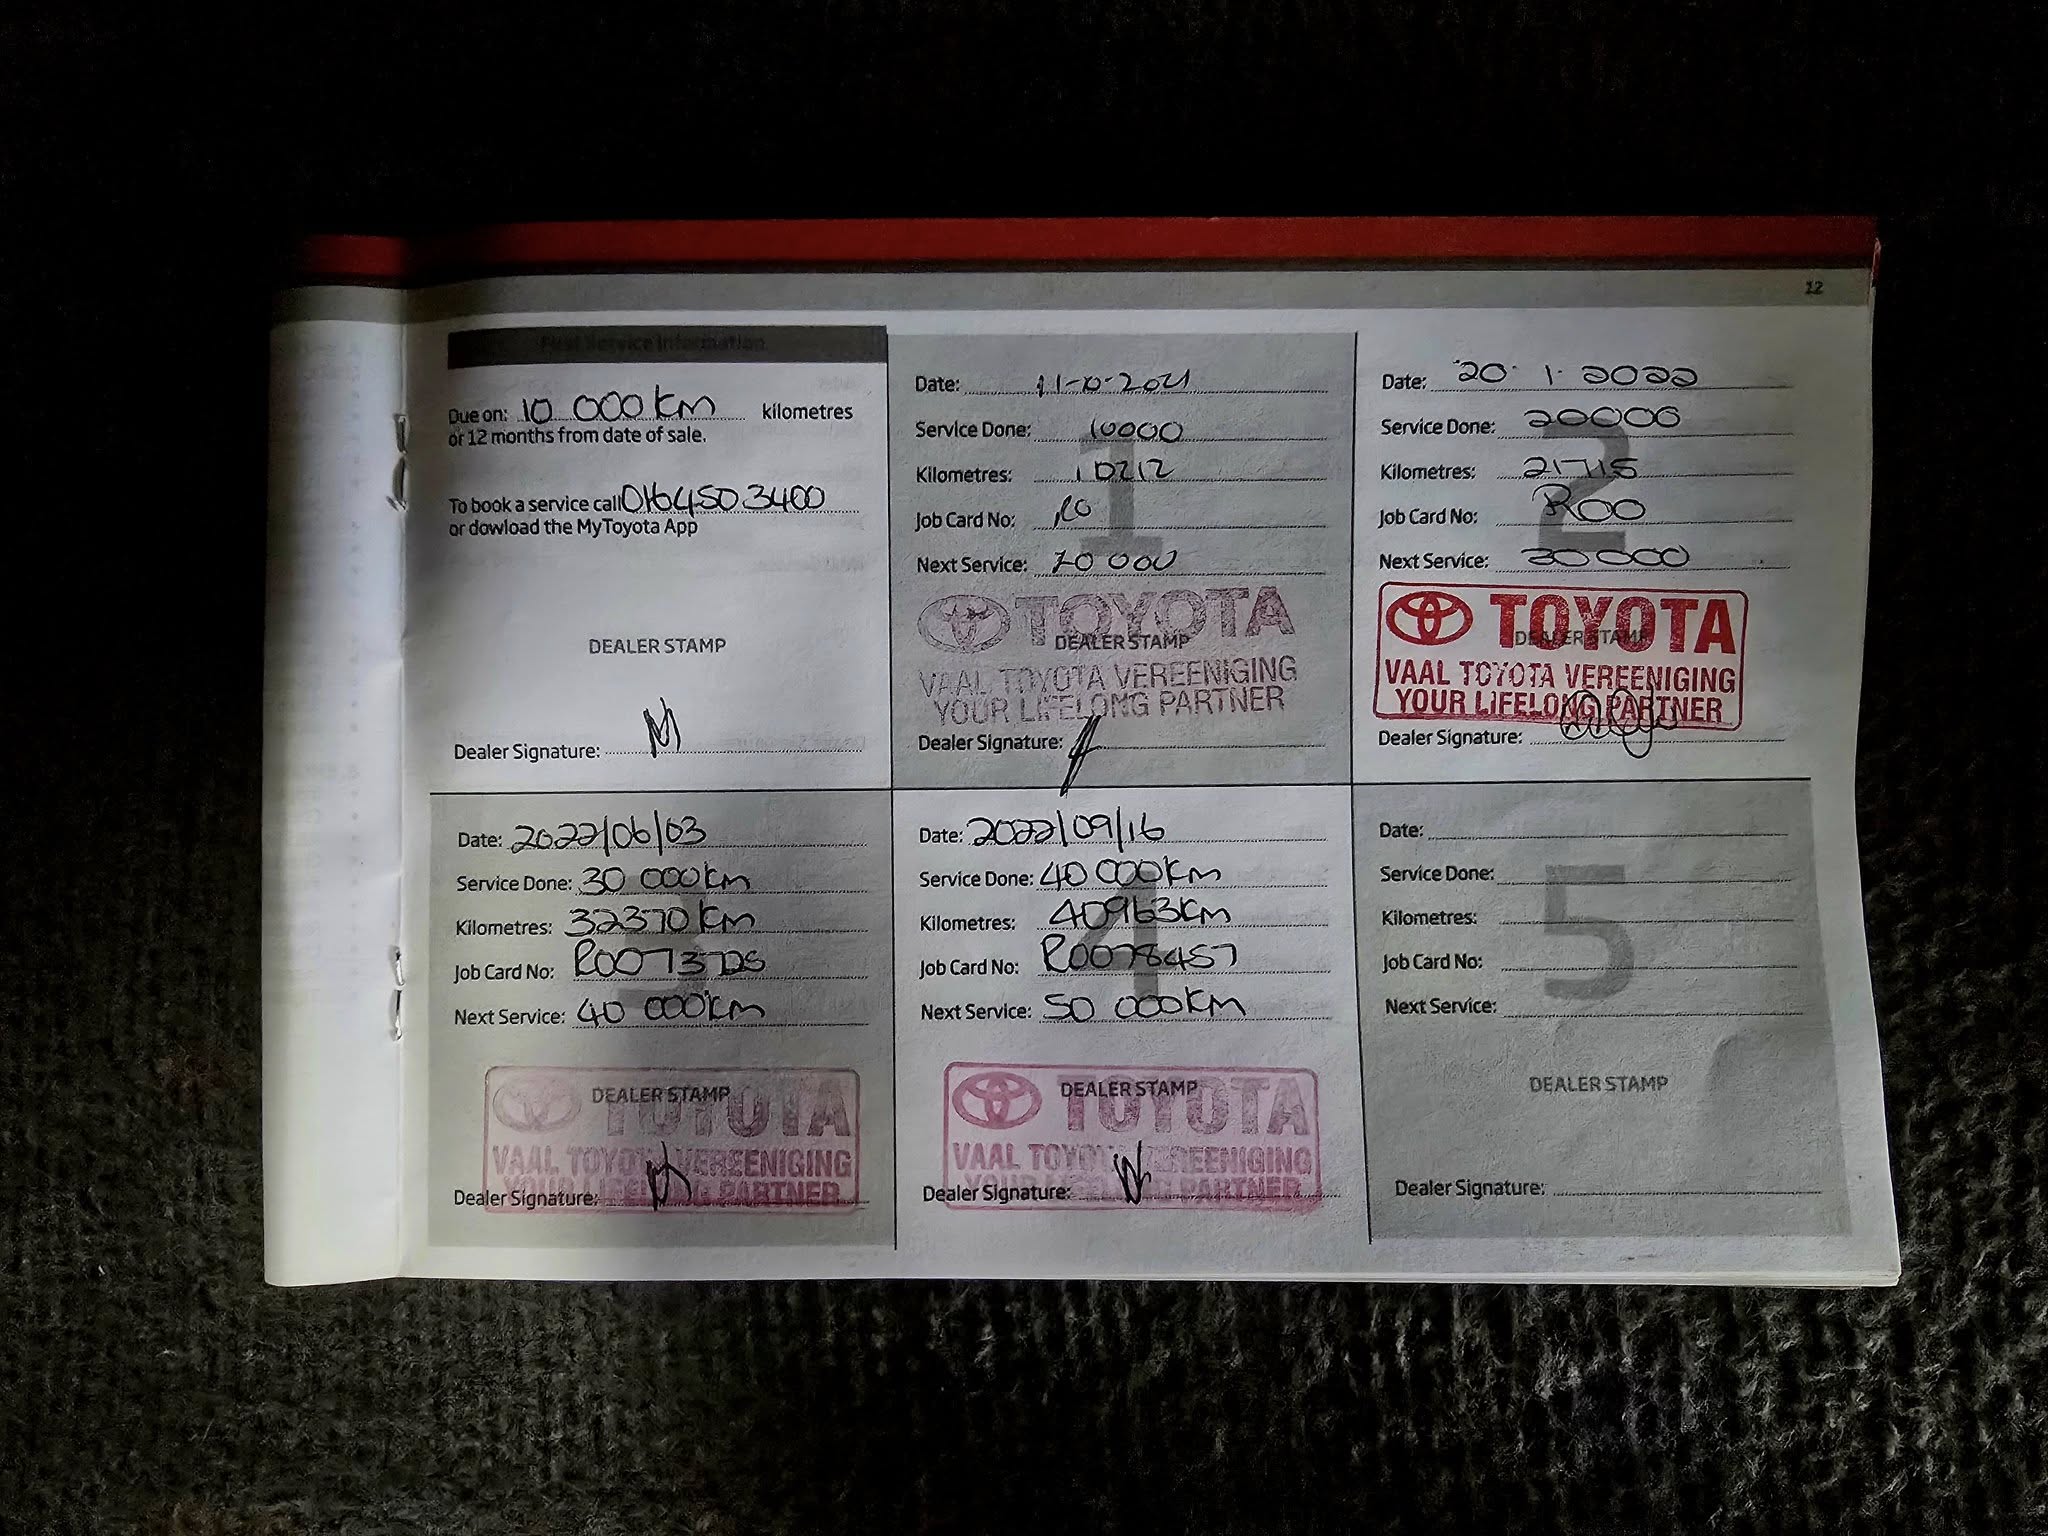 12
First Service Information
Due on: 10 000km kilometres
or 12 months from date of sale.
To book a service call 016 450 3400
or dowload the MyToyota App
DEALER STAMP
Dealer Signature:
1
Date: 11-10-2021
Service Done: 10000
Kilometres: 10212
Job Card No: RO
Next Service: 20 000
DEALER STAMP
TOYOTA
VAAL TOYOTA VEREENIGING
YOUR LIFELONG PARTNER
Dealer Signature:
2
Date: 20.1.2022
Service Done: 20000
Kilometres: 21715
Job Card No: ROO
Next Service: 30000
DEALER STAMP
TOYOTA
VAAL TOYOTA VEREENIGING
YOUR LIFELONG PARTNER
Dealer Signature:
3
Date: 2022/06/03
Service Done: 30 000km
Kilometres: 32370km
Job Card No:
Next Service: 40 000km
DEALER STAMP
TOYOTA
VAAL TOYOTA VEREENIGING
YOUR LIFELONG PARTNER
Dealer Signature:
4
Date: 2022/09/16
Service Done: 40 000km
Kilometres: 40963km
Job Card No: R0078457
Next Service: 50 000km
DEALER STAMP
TOYOTA
VAAL TOYOTA VEREENIGING
YOUR LIFELONG PARTNER
Dealer Signature:
5
Date:
Service Done:
Kilometres:
Job Card No:
Next Service:
DEALER STAMP
Dealer Signature: